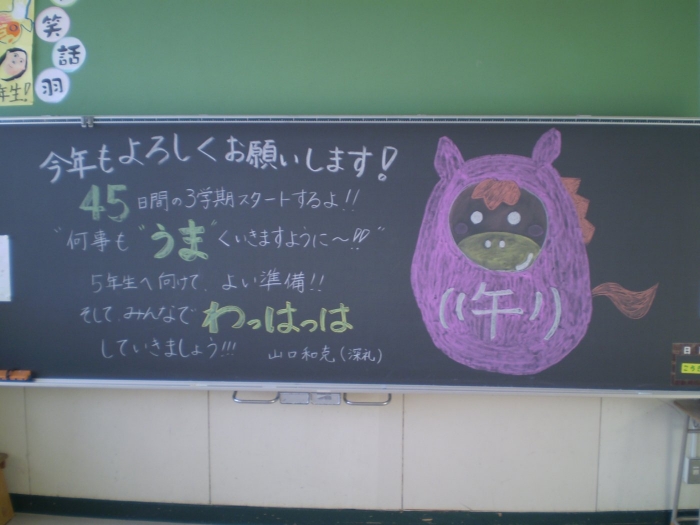 笑
話
羽
年生!
今年もよろしくお願いします!
45日間の3学期スタートするよ!!
"何事も"うま"くいきますように〜!!"
5年生へ向けて、よい準備!!
そして、みんなで わっはっは
していきましょう!!! 山口和亮(深礼)
午